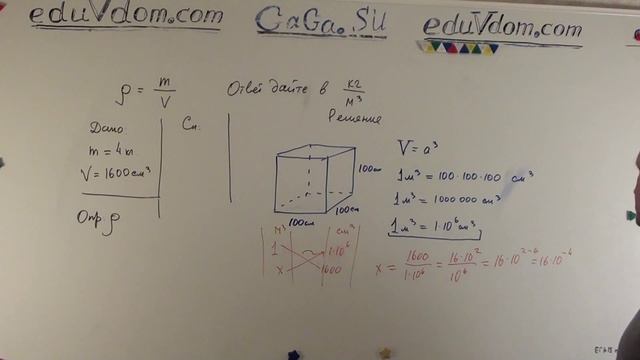 eduVdom.com
GaGa.Su
eduVdom.com
ρ = m/V
Ответ дайте в кг/м³
Дано
m = 4кг
V = 1600 см³
Опр. ρ
Си.
Решение
100см
100см
100см
V = a³
1м³ = 100·100·100 см³
1м³ = 1000 000 см³
1м³ = 1·10⁶ см³
м³ см³
1 1·10⁶
x 1600
x = 1600/1·10⁶ = 16·10²/10⁶ = 16·10²⁻⁶ = 16·10⁻⁴